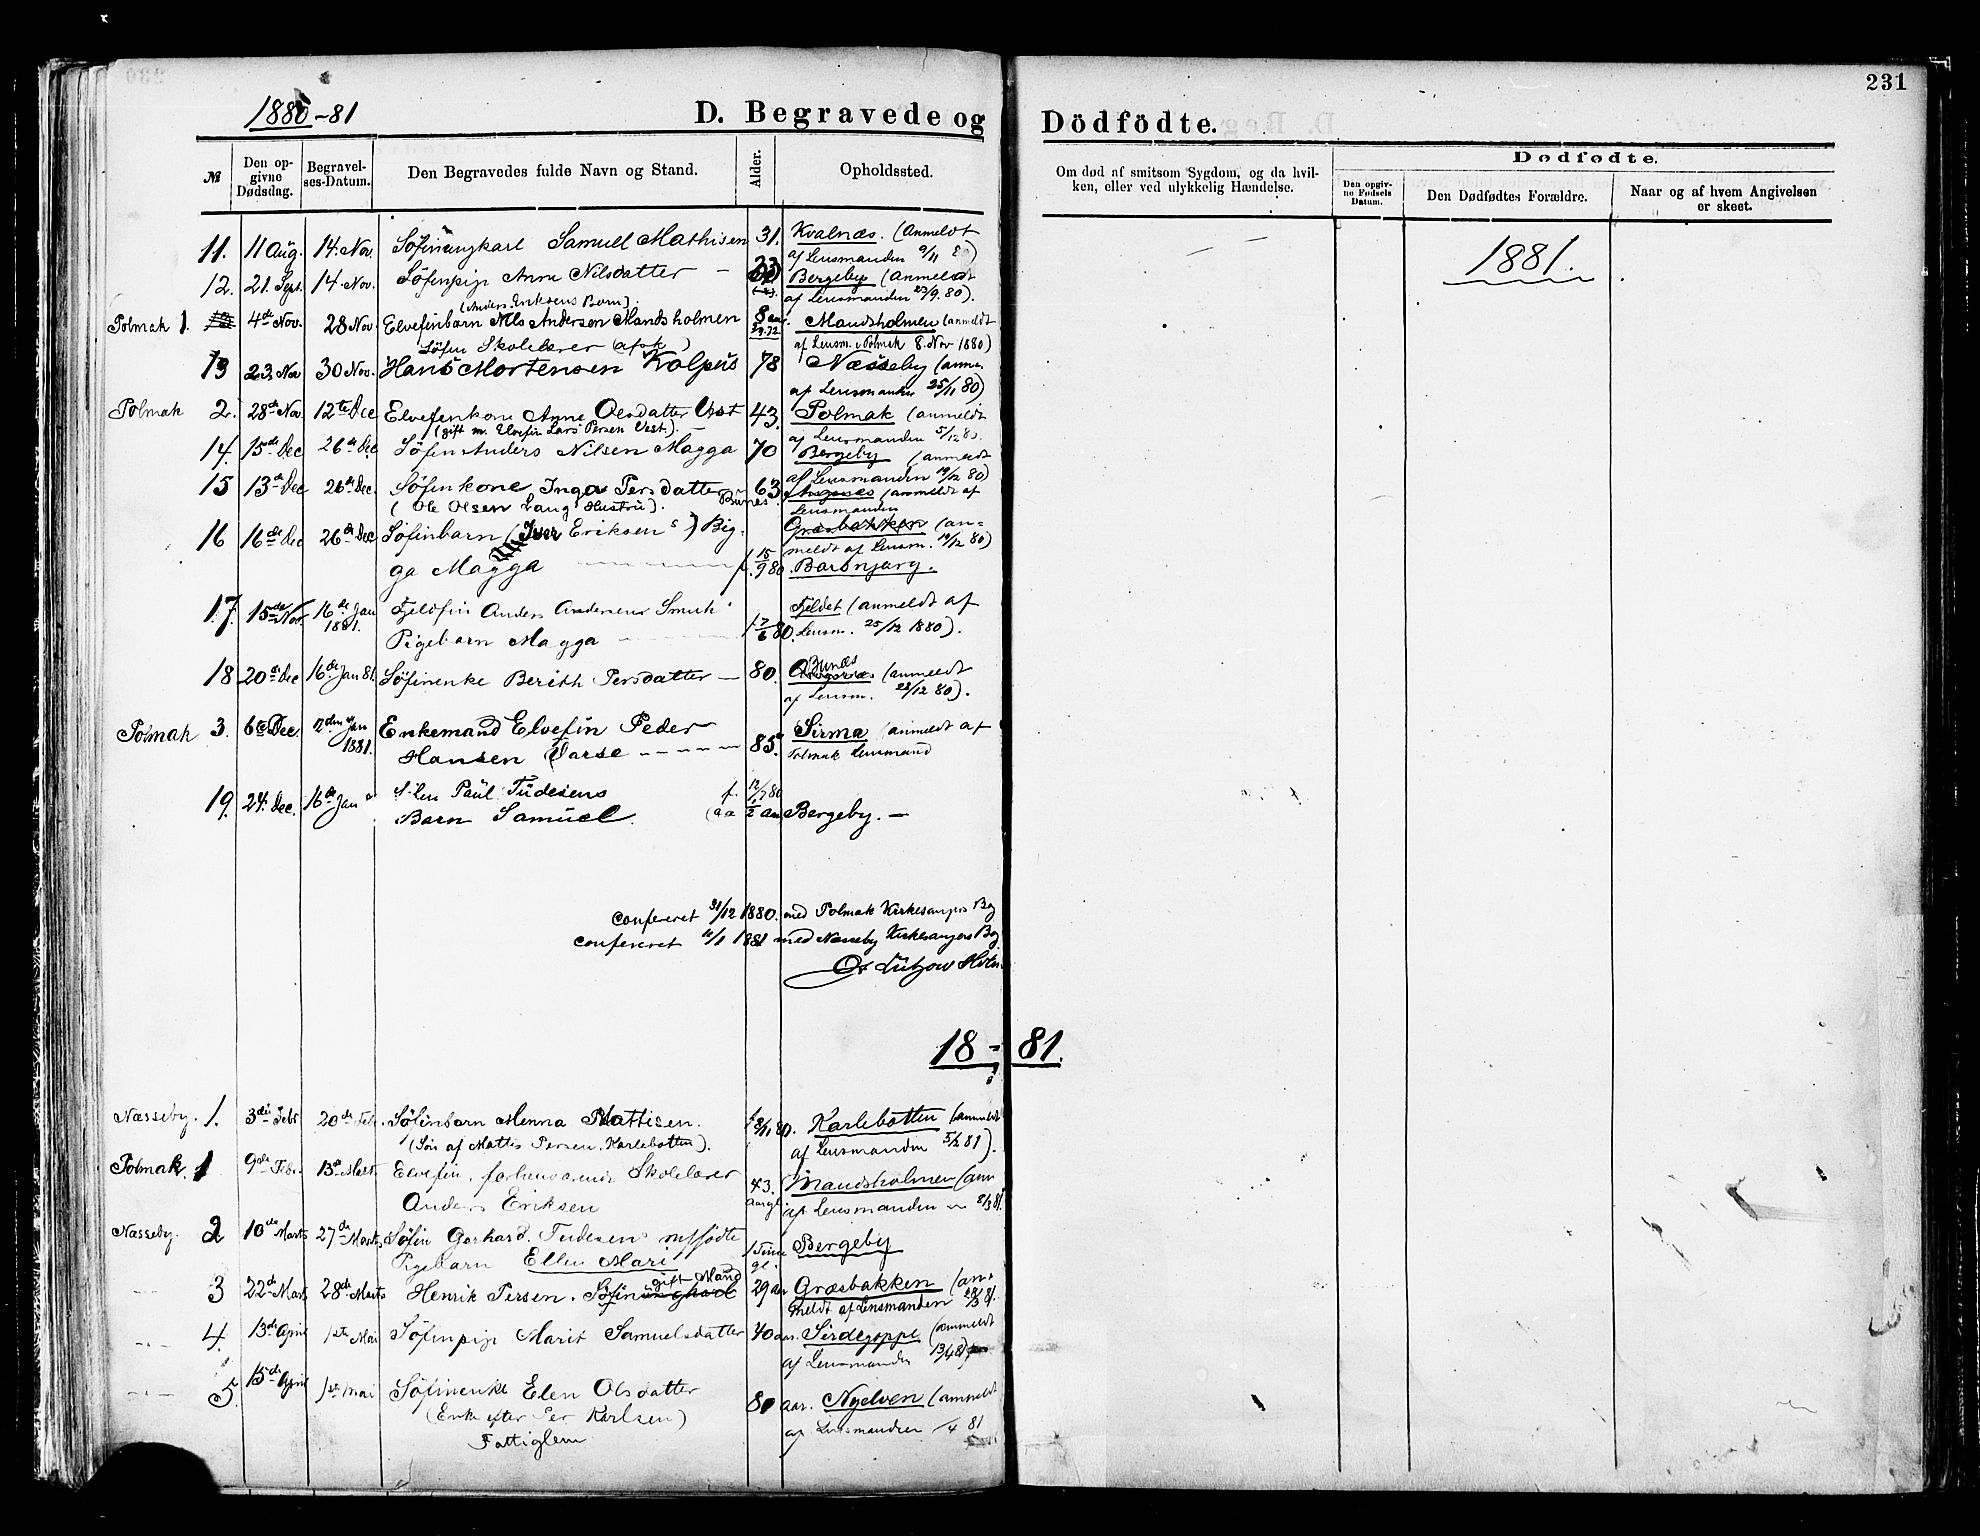 231
1880-81
D. Begravede og Dödfödte.
№
Den opgivne Dødsdag.
Begravelses-Datum.
Den Begravedes fulde Navn og Stand.
Alder.
Opholdssted.
Om død af smitsom Sygdom, og da hvilken, eller ved ulykkelig Hændelse.
Dødfødte.
Den opgivne Fødsels Datum.
Den Dødfødtes Forældre.
Naar og af hvem Angivelsen er skeet.
1881.
11. 11 Aug. 14. Nov. Samuel Mathisen 31. Kvalnæs. (Anmeldt
af Lensmanden 9/11 80)
12. 21. Sept. 14. Nov. Søfinpige Anne Nilsdatter — Bergeby (Anmeldt
af Lensmanden 23/9. 80).
(Anders Eriksens Barn).
Polmak 1. 4de Nov. 28 Nov. Elvefinbarn Nils Andersen Mandsholmen 8 aar. Mandsholmen (anmeldt
af Lensm. i Polmak 8. Nov 1880)
Søfin Skolelærer (afsk.)
13 23. Nov 30 Nov. Hans Mortensen Kolpus 78 Næsseby (anm.
af Lensmanden 25/11 80)
Polmak 2. 28de Nov. 12te Dec Elvefinkone Anne Olsdatter Vest 43. Polmak (anmeldt
(gift m. Elvefin Lars Persen Vest.). af Lensmanden 5/12 80.
14. 15de Dec 26de Dec Søfin Anders Nilsen Magga 70 Bergeby (anmeldt
af Lensmanden 19/12 80)
15 13de Dec 26de Dec. Søfinkone Inga Persdatter Bunes. 63 Angsnes (anmeldt af
(Ole Olsen Lang Hustru). Lensmanden
16 16de Dec 26de Dec Søfinbarn (Iver Eriksens) Big- Græsbakken (an=
meldt af Lensm. 19/12 80)
ga Magga f. 15/9 80. Barsnjarg.
17. 15de Nov. 16de Jan 1881. Fjeldfin Anders Andersens Smuk Fjeldet (anmeldt af
Pigebarn Magga f 7/6 80. Lensm. 25/12 1880).
18 20de Dec 16de Jan 81. Søfinenke Berith Persdatter — 80. Bunæs (anmeldt
af Lensm. 28/12 80).
Polmak 3. 6te Dec. Jan 1881. Enkemand Elvefin Peder Sirma (anmeldt af
Hansen Varse 85. Polmak Lensmand
19. 24. Dec. 16de Jan Paul Tudesens f. 80
Barn Samuel. 1/2 aar Bergeby. —
Confereret 31/12 1880. med Polmak Kirkesangers Bog
Confereret 10/1 1881 med Næsseby Kirkesangers Bog
O. Lützow Holm.
18 - 81.
Næsseby. 1. 3die Febr 20de Feb. Søfinbarn Henna Mattisen. Karlebotten (anmeldt
(Søn af Mattis Persen. Karlebotten). af Lensmanden 5/2 81).
Polmak. 1 9de Febr. 13de Marts Elvefin, forhenværende Skolelærer 43. Mandsholmen (anm
Anders Eriksen aar gl. af Lensmanden 8/3 81.
Næsseby. 2 10de Marts 27de Marts Søfin Gerhard Tudesens nyfødte 1 Time Bergeby
Pigebarn Ellen Mari gl.
3 22de Marts 28de Marts Henrik Persen. Søfin gift Mand 29 aar Græsbakken (an=
meldt af Lensmanden 28/3 81.
4. 13de April 1ste Mai Søfinpige Marit Samuelsdatter 40 aar. Sirdegoppe (anmeldt
af Lensmanden 13/4 81)
5. 15de April 1ste Mai Søfinenke Elen Olsdatter 80 aar. Nyelven (anmeldt
(Enke efter Per Karlsen) af Lensmanden /4 81
Fattiglem